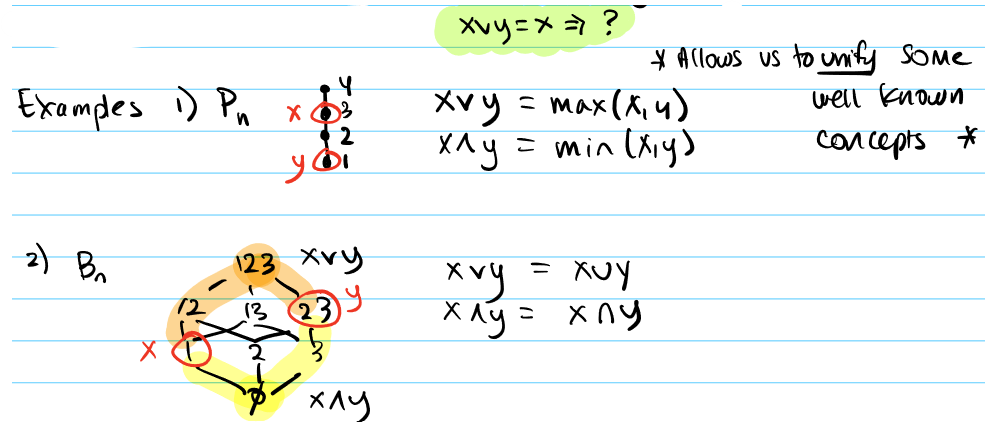 x∨y = x ⇒ ?
* Allows us to unify some
well known
concepts *
Examples 1) Pn
4
x 3
2
y 1
x∨y = max(x,y)
x∧y = min(x,y)
2) Bn
123 x∨y
12 13 23 y
x 1 2 3
∅ x∧y
x∨y = x∪y
x∧y = x∩y